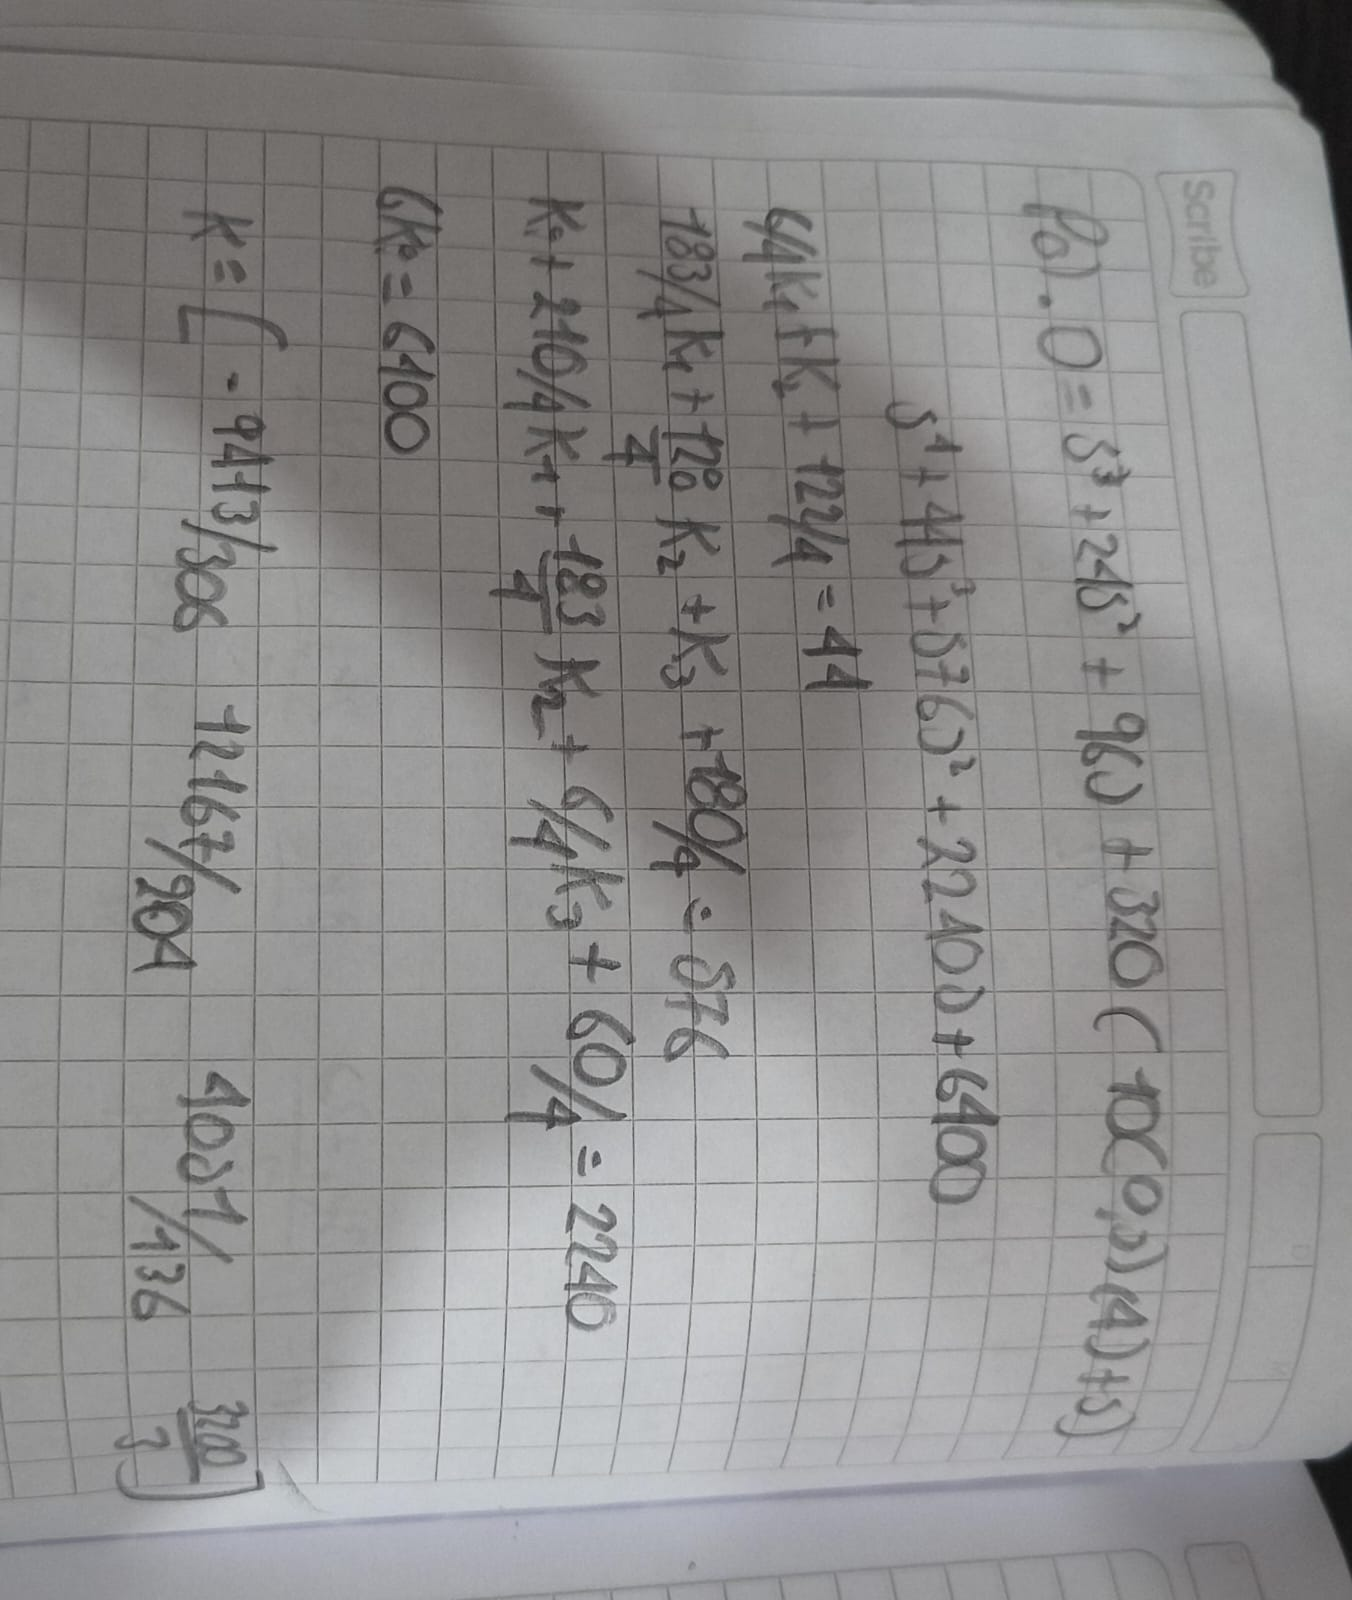 Scribe
P(s). 0 = s³ + 24s² + 96s + 320 ( 10(0,5)(4)+s)
s⁴ + 44s³ + 576s² + 2240s + 6400
6/4K₁ + K₂ + 122/4 = 44
183/4 K₁ + 120/4 K₂ + K₃ + 180/4 = 576
K₀ + 210/4 K₁ + 183/4 K₂ + 6/4 K₃ + 60/4 = 2240
6K₀ = 6400
K = [ - 9413/306 12167/204 4051/136 3200/3 ]